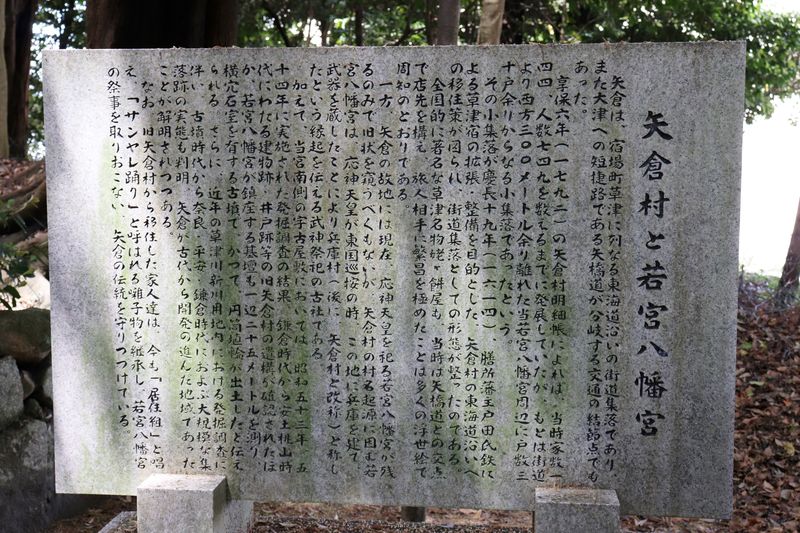 矢倉村と若宮八幡宮
矢倉は、宿場町草津に列なる東海道沿いの街道集落であり
また大津への短捷路である矢橋道が分岐する交通の結節点でも
あった。
享保六年(一七九二)の矢倉村明細帳によれば、当時家数一
四四、人数七四九を数えるまでに発展していたが、もとは街道
より西方三〇〇メートル余り離れた当若宮八幡宮周辺に戸数三
十戸余りからなる小集落であったという。
その小集落が慶長十九年(一六一四)、膳所藩主戸田氏鉄に
よる草津宿の拡張、整備を目的とした、矢倉村の東海道沿いへ
の移住策が図られ、街道集落としての形態が整ったのである。
全国的に著名な草津名物姥ヶ餅屋も、当時は矢橋道との交点
で店先を構え、旅人相手に繁昌を極めたことは多くの浮世絵で
周知のとおりである。
一方、矢倉の故地には現在、応神天皇を祀る若宮八幡宮が残
るのみで旧状を窺うべくもないが、矢倉村の村名起源に因む若
宮八幡宮は、応神天皇が東国巡按の時、この地に兵庫を建て
武器を蔵したことにより兵庫村(後に、矢倉村と改称)と称し
たという縁起を伝える武神祭祀の古社である。
加えて、当宮南側の字古屋敷においては、昭和五十三年、五
十四年に実施された発掘調査の結果、鎌倉時代から安土桃山時
代にわたる建物跡、井戸跡等の旧矢倉村の遺構が確認されたほ
か、若宮八幡宮が鎮座する基壇も一辺二十五メートルを測り
横穴石室を有する古墳で、かつて、円筒埴輪が出土したと伝え
られる。さらに、近年の草津川新川用地内における発掘調査に
伴い、古墳時代から奈良、平安、鎌倉時代におよぶ大規模な集
落跡の実態も判明、矢倉が古代から開発の進んだ地域であった
ことが解明されつつある。
なお、旧矢倉村から移住した家人達は、今も「居住組」と唱
え、「サンヤレ踊り」と呼ばれる囃子物を継承し、若宮八幡宮
の祭事を取りおこない、矢倉の伝統を守りつづけている。